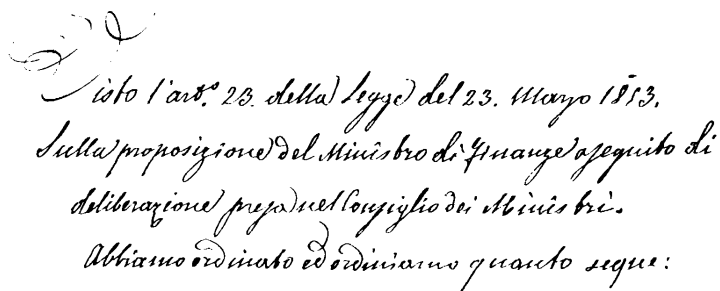 Visto l'art.º 23. della Legge del 23. Marzo 1853.
Sulla proposizione del Ministro di Finanze a seguito di
deliberazione presa nel Consiglio dei Ministri.
Abbiamo ordinato ed ordiniamo quanto segue: